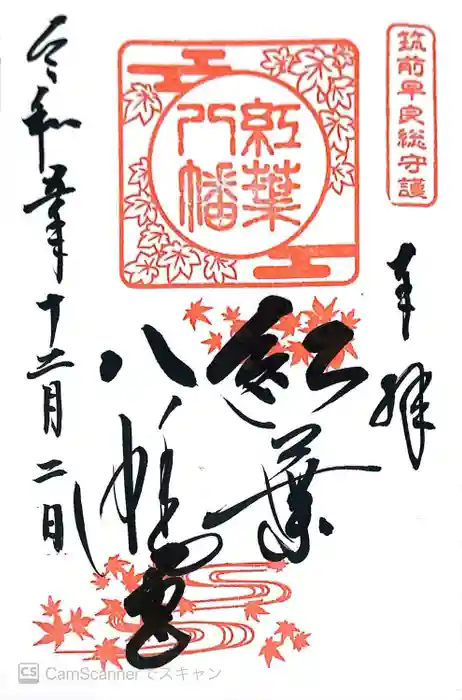 筑前早良総守護
奉拝
紅葉
八幡
紅葉
八幡宮
令和五年十二月二日
CS CamScannerでスキャン